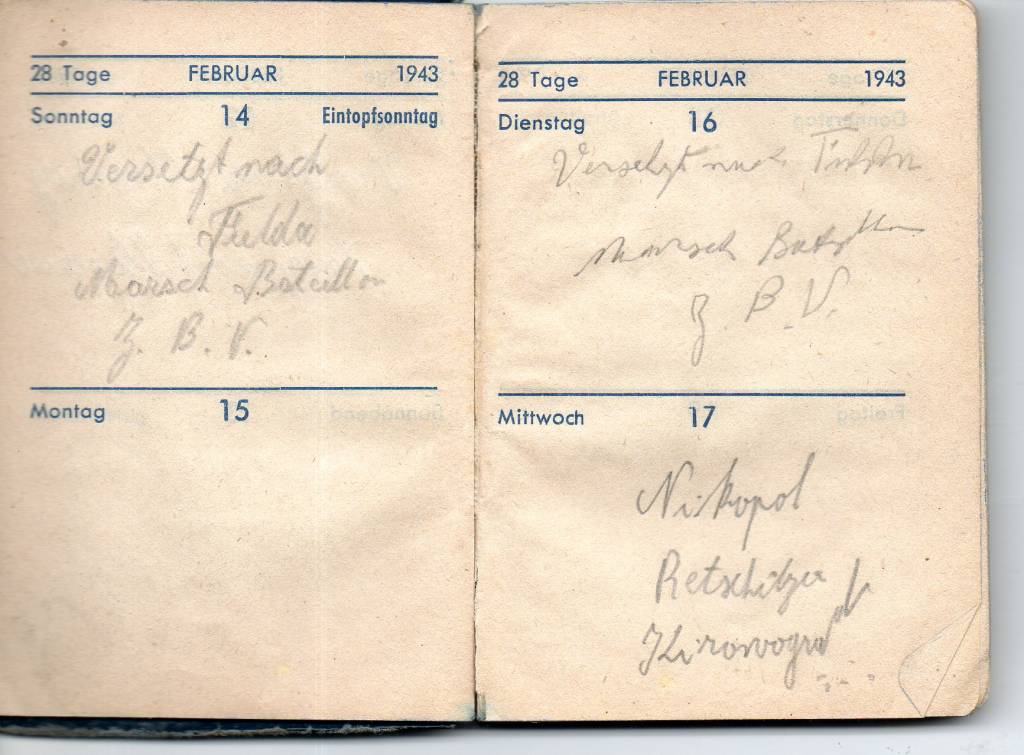 28 Tage FEBRUAR 1943
Sonntag 14 Eintopfsonntag
Versetzt nach
Fulda
Marsch Bataillon
Z. B. V.
Montag 15
28 Tage FEBRUAR 1943
Dienstag 16
Versetzt nach
Marsch Batallon
Z. B. V.
Mittwoch 17
Nikopol
Retschitza
Kirowograd